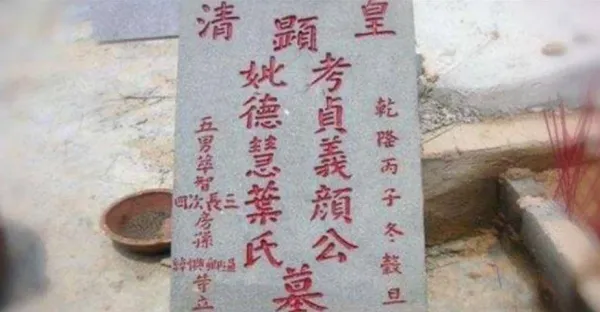 乾隆丙子冬穀旦
皇清
顯
考貞義顏公
妣德慧葉氏
墓
五男智
三長次四
房孫
等立